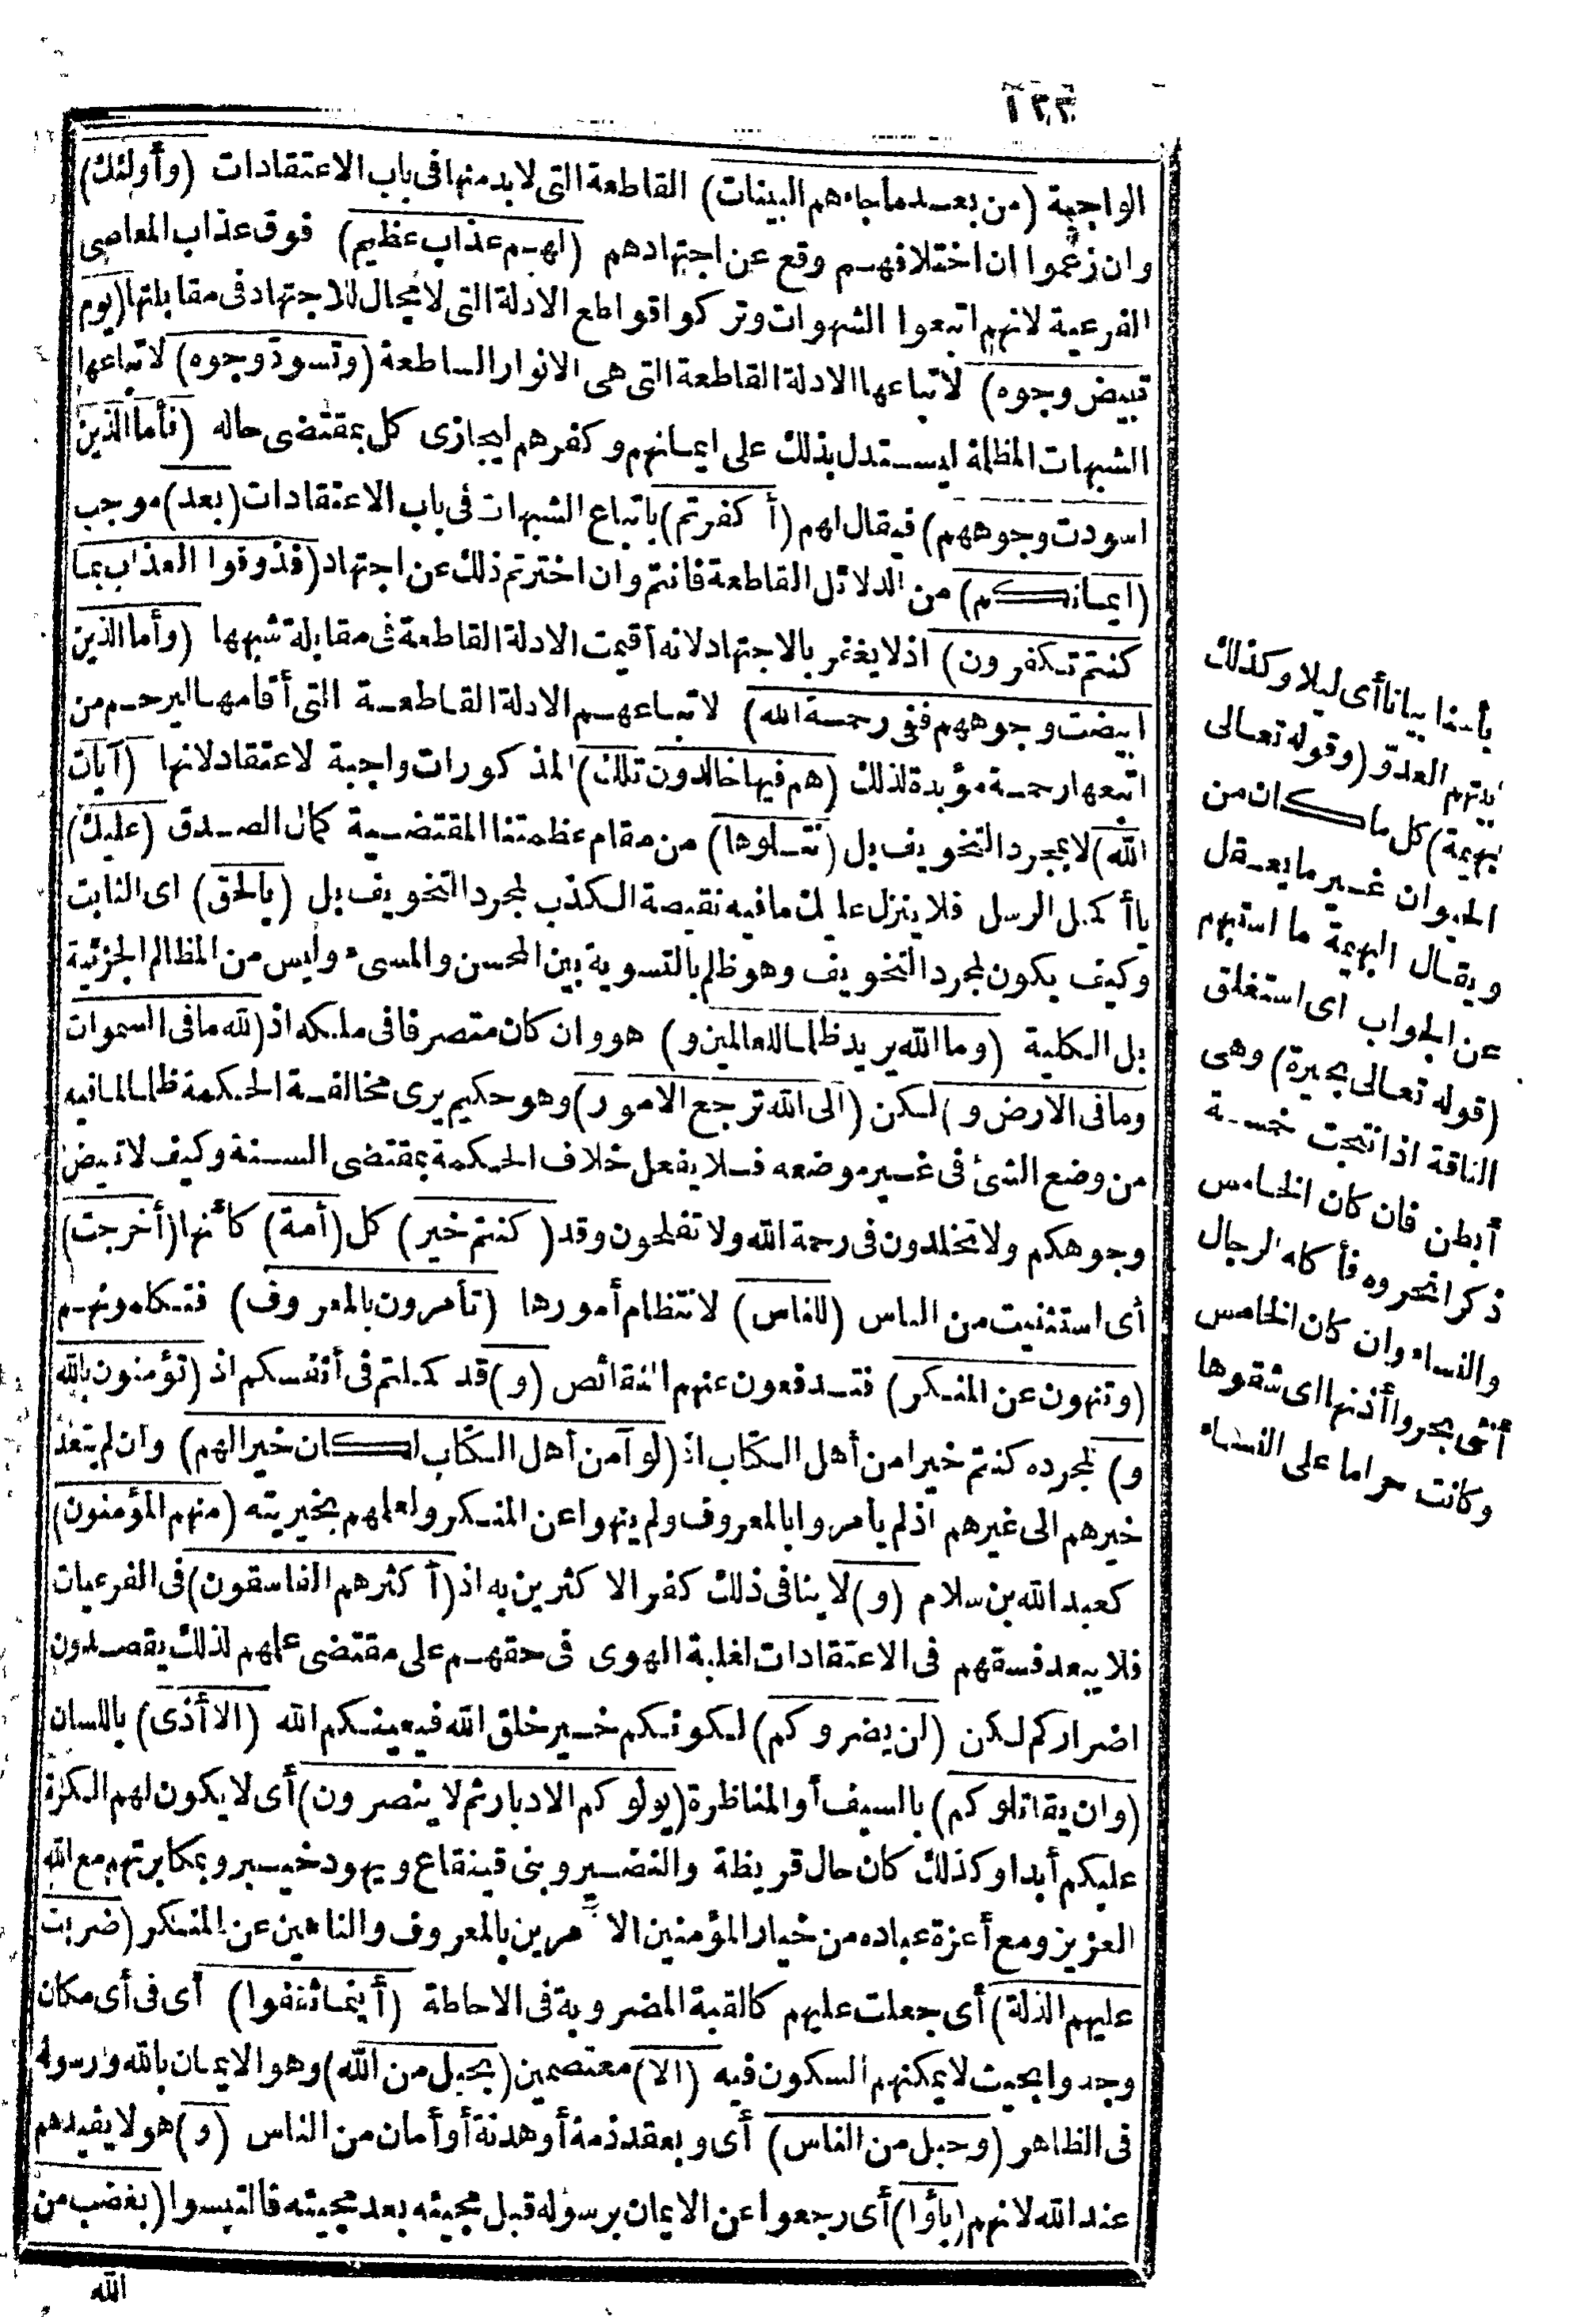 ١٢٢
الواجبة (من بعد ما جاءهم البينات) القاطعة التى لا بد منها فى باب الاعتقادات (وأولئك)
وان زعموا ان اختلافهم وقع عن اجتهادهم (لهم عذاب عظيم) فوق عذاب المعاصى
الفرعية لانهم اتبعوا الشهوات وتركوا قواطع الادلة التى لا مجال للاجتهاد فى مقابلتها (يوم
تبيض وجوه) لاتباعها الادلة القاطعة التى هى الانوار الساطعة (وتسود وجوه) لاتباعها
الشبهات المظلمة ليستدل بذلك على ايمانهم وكفرهم ليجازى كل بمقتضى حاله (فأما الذين
اسودت وجوههم) فيقال لهم (أكفرتم) باتباع الشبهات فى باب الاعتقادات (بعد) موجب
(ايمانكم) من الدلائل القاطعة فانتم وان اخترتم ذلك عن اجتهاد (فذوقوا العذاب بما
كنتم تكفرون) اذ لا يغتر بالاجتهاد لانه أقيمت الادلة القاطعة فى مقابلة شبهها (وأما الذين
ابيضت وجوههم ففى رحمة الله) لاتباعهم الادلة القاطعة التى أقامها ليرحم من
اتبعها رحمة مؤبدة لذلك (هم فيها خالدون تلك) المذكورات واجبة الاعتقاد لانها (آيات
الله) لا بمجرد التخويف بل (نتلوها) من مقام عظمتنا المقتضية كمال الصدق (عليك)
يا أكمل الرسل فلا ينزل عليك ما فيه نقيصة الكذب لمجرد التخويف بل (بالحق) اى الثابت
وكيف يكون لمجرد التخويف وهو ظلم بالتسوية بين المحسن والمسىء وليس من المظالم الجزئية
بل الكلية (وما الله يريد ظلما للعالمين و) هو وان كان متصرفا فى ملكه اذ (لله ما فى السموات
وما فى الارض و) لكن (الى الله ترجع الامور) وهو حكيم يرى مخالفة الحكمة ظلما لما فيه
من وضع الشئ فى غير موضعه فلا يفعل خلاف الحكمة بمقتضى السنة وكيف لا تبيض
وجوهكم ولا تخلدون فى رحمة الله ولا تفلحون وقد (كنتم خير) كل (أمة) كأنها (أخرجت)
أى استثنيت من الناس (للناس) لانتظام أمورها (تأمرون بالمعروف) فتكملونهم
(وتنهون عن المنكر) فتدفعون عنهم النقائص (و) قد كملتم فى أنفسكم اذ (تؤمنون بالله
و) لمجرده كنتم خيرا من أهل الكتاب اذ (لو آمن أهل الكتاب لكان خيرا لهم) وان لم يتعد
خيرهم الى غيرهم اذ لم يأمروا بالمعروف ولم ينهوا عن المنكر ولعلمهم بخيريته (منهم المؤمنون)
كعبد الله بن سلام (و) لا ينافى ذلك كفر الاكثرين به اذ (أكثرهم الفاسقون) فى الفرعيات
فلا يبعد فسقهم فى الاعتقادات لغلبة الهوى فى حقهم على مقتضى علمهم لذلك يقصدون
اضراركم لكن (لن يضروكم) لكونكم خير خلق الله فيعينكم الله (الا أذى) باللسان
(وان يقاتلوكم) بالسيف أو المناظرة (يولوكم الادبار ثم لا ينصرون) أى لا يكون لهم الكرة
عليكم أبدا وكذلك كان حال قريظة والنضير وبنى قينقاع ويهود خيبر وبمكابرتهم مع الله
العزيز ومع أعزة عباده من خيار المؤمنين الآمرين بالمعروف والناهين عن المنكر (ضربت
عليهم الذلة) أى جعلت عليهم كالقبة المضروبة فى الاحاطة (أينما ثقفوا) أى فى أى مكان
وجدوا بحيث لا يمكنهم السكون فيه (الا) معتصمين (بحبل من الله) وهو الايمان بالله ورسوله
فى الظاهر (وحبل من الناس) أى وبعقد ذمة أو هدنة أو أمان من الناس (و) هو لا يفيدهم
عند الله لانهم (باؤا) أى رجعوا عن الايمان برسوله قبل مجيئه بعد مجيئه فالتبسوا (بغضب من
الله
بأسنا بياتا أى ليلا وكذلك
بيتهم العدو (وقوله تعالى
بهيمة) كل ما كان من
الحيوان غير ما يعقل
ويقال البهيمة ما استبهم
عن الجواب اى استغلق
(قوله تعالى بحيرة) وهى
الناقة اذا نتجت خمسة
أبطن فان كان الخامس
ذكرا نحروه فأكله الرجال
والنساء وان كان الخامس
أنثى بحروا أذنها اى شقوها
وكانت حراما على النساء